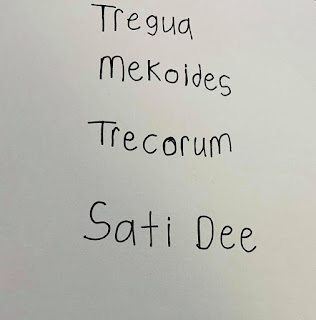 Tregua
Mekoides
Trecorum
Sati Dee